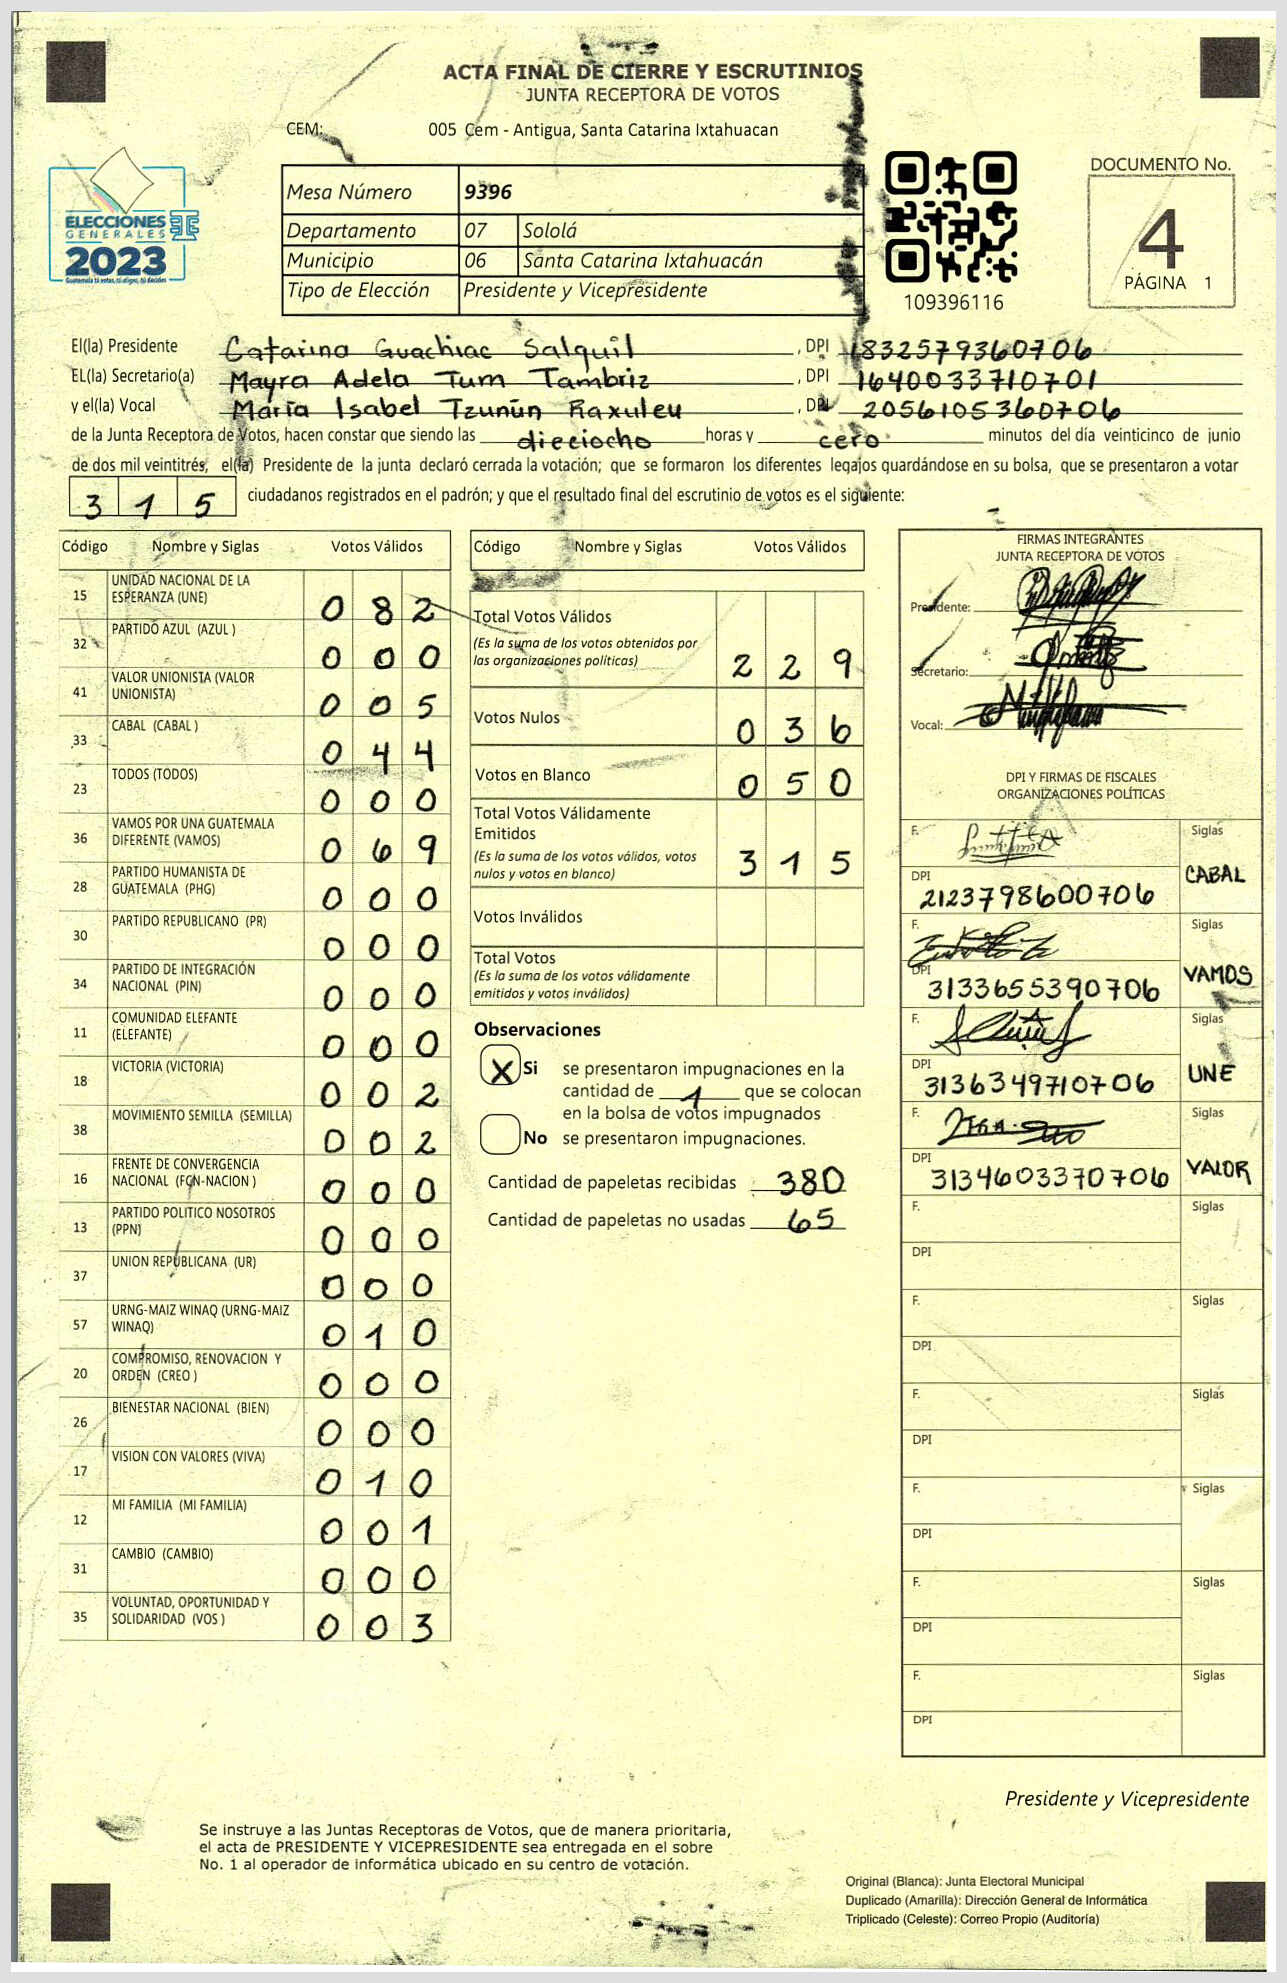 ACTA FINAL DE CIERRE Y ESCRUTINIOS
JUNTA RECEPTORA DE VOTOS
CEM: 005 Cem - Antigua, Santa Catarina Ixtahuacan
ELECCIONES
GENERALES
2023
Guatemala tú votas, tú eliges, tú decides
Mesa Número 9396
Departamento 07 Sololá
Municipio 06 Santa Catarina Ixtahuacán
Tipo de Elección Presidente y Vicepresidente
109396116
DOCUMENTO No.
4
PÁGINA 1
El(la) Presidente Catarina Guachiac Salquil, DPI 1832579360706
EL(la) Secretario(a) Mayra Adela Tum Tambriz, DPI 1640033710701
y el(la) Vocal María Isabel Tzunún Raxuleu, DPI 2056105360706
de la Junta Receptora de Votos, hacen constar que siendo las dieciocho horas y cero minutos del día veinticinco de junio
de dos mil veintitrés, el(la) Presidente de la junta declaró cerrada la votación; que se formaron los diferentes legajos guardándose en su bolsa, que se presentaron a votar
315 ciudadanos registrados en el padrón; y que el resultado final del escrutinio de votos es el siguiente:
Código Nombre y Siglas Votos Válidos
15 UNIDAD NACIONAL DE LA ESPERANZA (UNE) 082
32 PARTIDO AZUL (AZUL ) 000
41 VALOR UNIONISTA (VALOR UNIONISTA) 005
33 CABAL (CABAL ) 044
23 TODOS (TODOS) 000
36 VAMOS POR UNA GUATEMALA DIFERENTE (VAMOS) 069
28 PARTIDO HUMANISTA DE GUATEMALA (PHG) 000
30 PARTIDO REPUBLICANO (PR) 000
34 PARTIDO DE INTEGRACIÓN NACIONAL (PIN) 000
11 COMUNIDAD ELEFANTE (ELEFANTE) 000
18 VICTORIA (VICTORIA) 002
38 MOVIMIENTO SEMILLA (SEMILLA) 002
16 FRENTE DE CONVERGENCIA NACIONAL (FCN-NACION ) 000
13 PARTIDO POLITICO NOSOTROS (PPN) 000
37 UNION REPUBLICANA (UR) 000
57 URNG-MAIZ WINAQ (URNG-MAIZ WINAQ) 010
20 COMPROMISO, RENOVACION Y ORDEN (CREO ) 000
26 BIENESTAR NACIONAL (BIEN) 000
17 VISION CON VALORES (VIVA) 010
12 MI FAMILIA (MI FAMILIA) 001
31 CAMBIO (CAMBIO) 000
35 VOLUNTAD, OPORTUNIDAD Y SOLIDARIDAD (VOS ) 003
Código Nombre y Siglas Votos Válidos
Total Votos Válidos
(Es la suma de los votos obtenidos por
las organizaciones políticas) 229
Votos Nulos 036
Votos en Blanco 050
Total Votos Válidamente
Emitidos
(Es la suma de los votos válidos, votos
nulos y votos en blanco) 315
Votos Inválidos
Total Votos
(Es la suma de los votos válidamente
emitidos y votos inválidos)
Observaciones
X Si se presentaron impugnaciones en la
cantidad de 1 que se colocan
en la bolsa de votos impugnados
No se presentaron impugnaciones.
Cantidad de papeletas recibidas 380
Cantidad de papeletas no usadas 65
FIRMAS INTEGRANTES
JUNTA RECEPTORA DE VOTOS
Presidente:
Secretario:
Vocal:
DPI Y FIRMAS DE FISCALES
ORGANIZACIONES POLÍTICAS
F. Siglas
DPI 2123798600706 CABAL
F. Siglas
DPI 3133655390706 VAMOS
F. Siglas
DPI 3136349710706 UNE
F. Siglas
DPI 3134603370706 VALOR
F. Siglas
DPI
F. Siglas
DPI
F. Siglas
DPI
F. Siglas
DPI
F. Siglas
DPI
F. Siglas
DPI
Presidente y Vicepresidente
Se instruye a las Juntas Receptoras de Votos, que de manera prioritaria,
el acta de PRESIDENTE Y VICEPRESIDENTE sea entregada en el sobre
No. 1 al operador de informática ubicado en su centro de votación.
Original (Blanca): Junta Electoral Municipal
Duplicado (Amarilla): Dirección General de Informática
Triplicado (Celeste): Correo Propio (Auditoría)